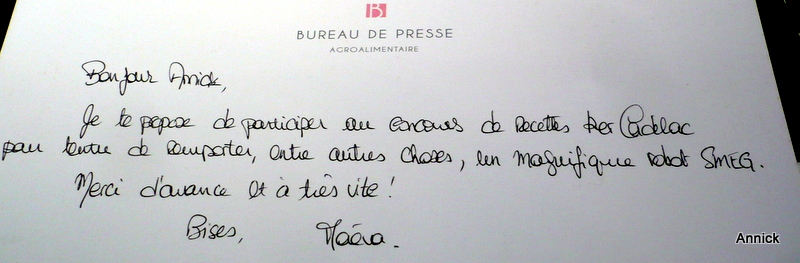 B
BUREAU DE PRESSE
AGROALIMENTAIRE
Bonjour Anick,
Je te propose de participer au concours de recettes Ker Cadelac
pour tenter de remporter, entre autres choses, un magnifique robot SMEG.
Merci d'avance et à très vite !
Bises, Maéva.
Annick